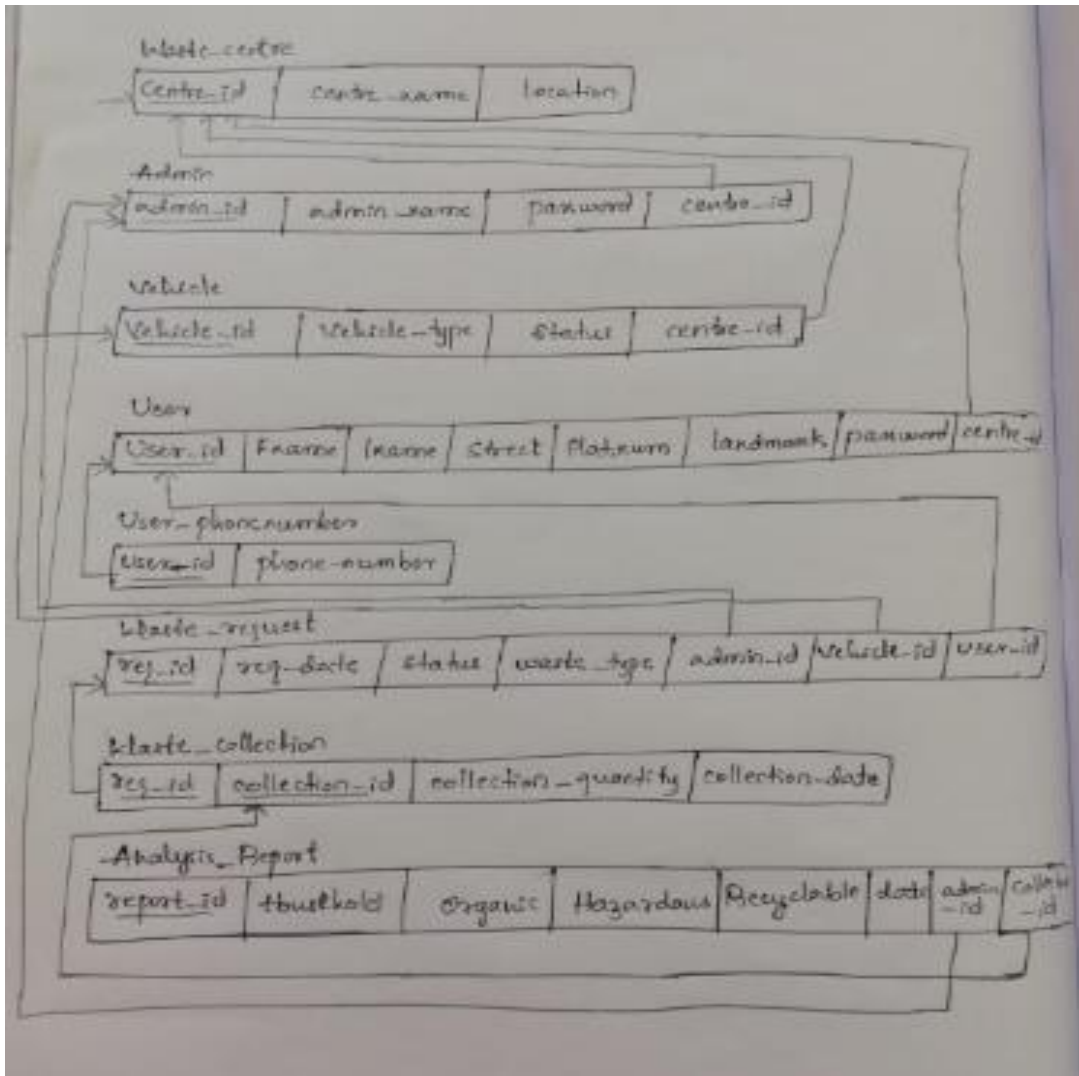 Waste_centre
Centre_id centre_name location
Admin
admin_id admin_name password centre_id
Vehicle
Vehicle_id Vehicle_type Status centre_id
User
User_id Fname lname Street Flatnum landmark password centre_id
User_phonenumber
User_id phone_number
Waste_request
req_id req_date status waste_type admin_id Vehicle_id User_id
Waste_collection
req_id collection_id collection_quantity collection_date
Analysis_Report
report_id Household Organic Hazardous Recyclable date admin_id